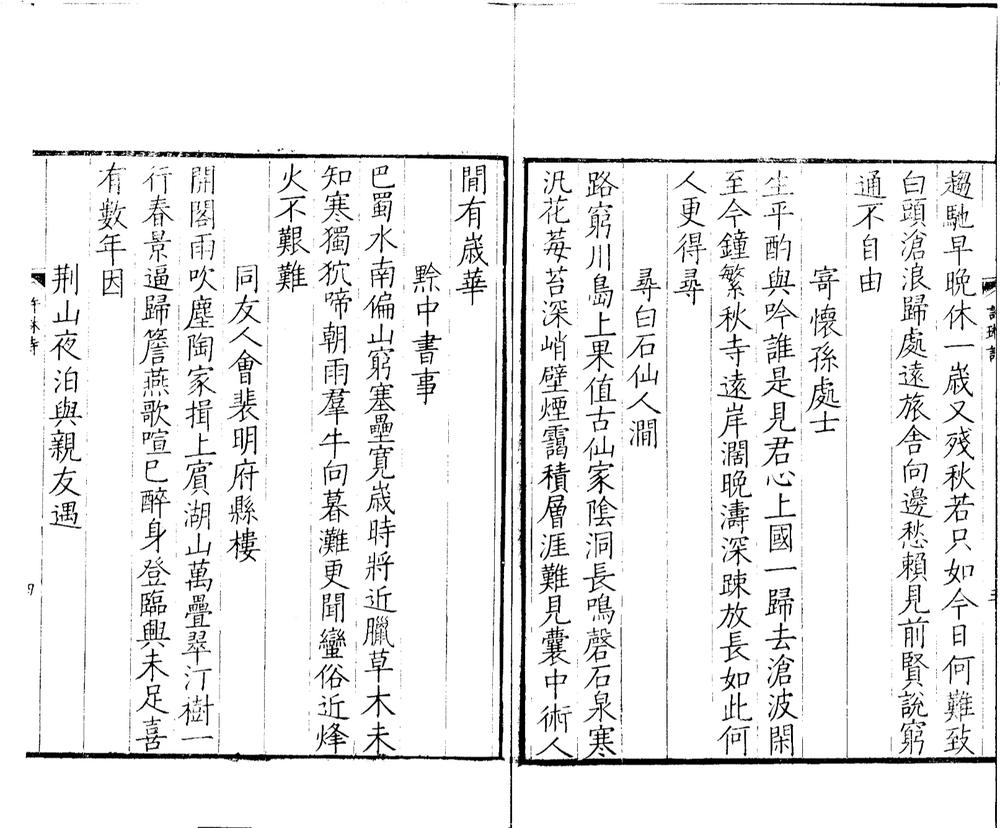 趨馳早晚休一歲又殘秋若只如今日何難致
白頭滄浪歸處遠旅舍向邊愁賴見前賢說窮
通不自由
寄懷孫處士
生平酌與吟誰是見君心上國一歸去滄波閑
至今鐘繁秋寺遠岸濶晚濤深踈放長如此何
人更得尋
尋白石仙人澗
路窮川島上果值古仙家陰洞長鳴磬石泉寒
汎花莓苔深峭壁煙靄積層涯難見囊中術人
閒有歲華
黔中書事
巴蜀水南偏山窮塞壘寬歲時將近臘草木未
知寒獨狖啼朝雨羣牛向暮灘更聞蠻俗近烽
火不艱難
同友人會裴明府縣樓
開閣雨吹塵陶家揖上賓湖山萬疊翠汀樹一
行春景逼歸簷燕歌喧已醉身登臨興未足喜
有數年因
荆山夜泊與親友遇